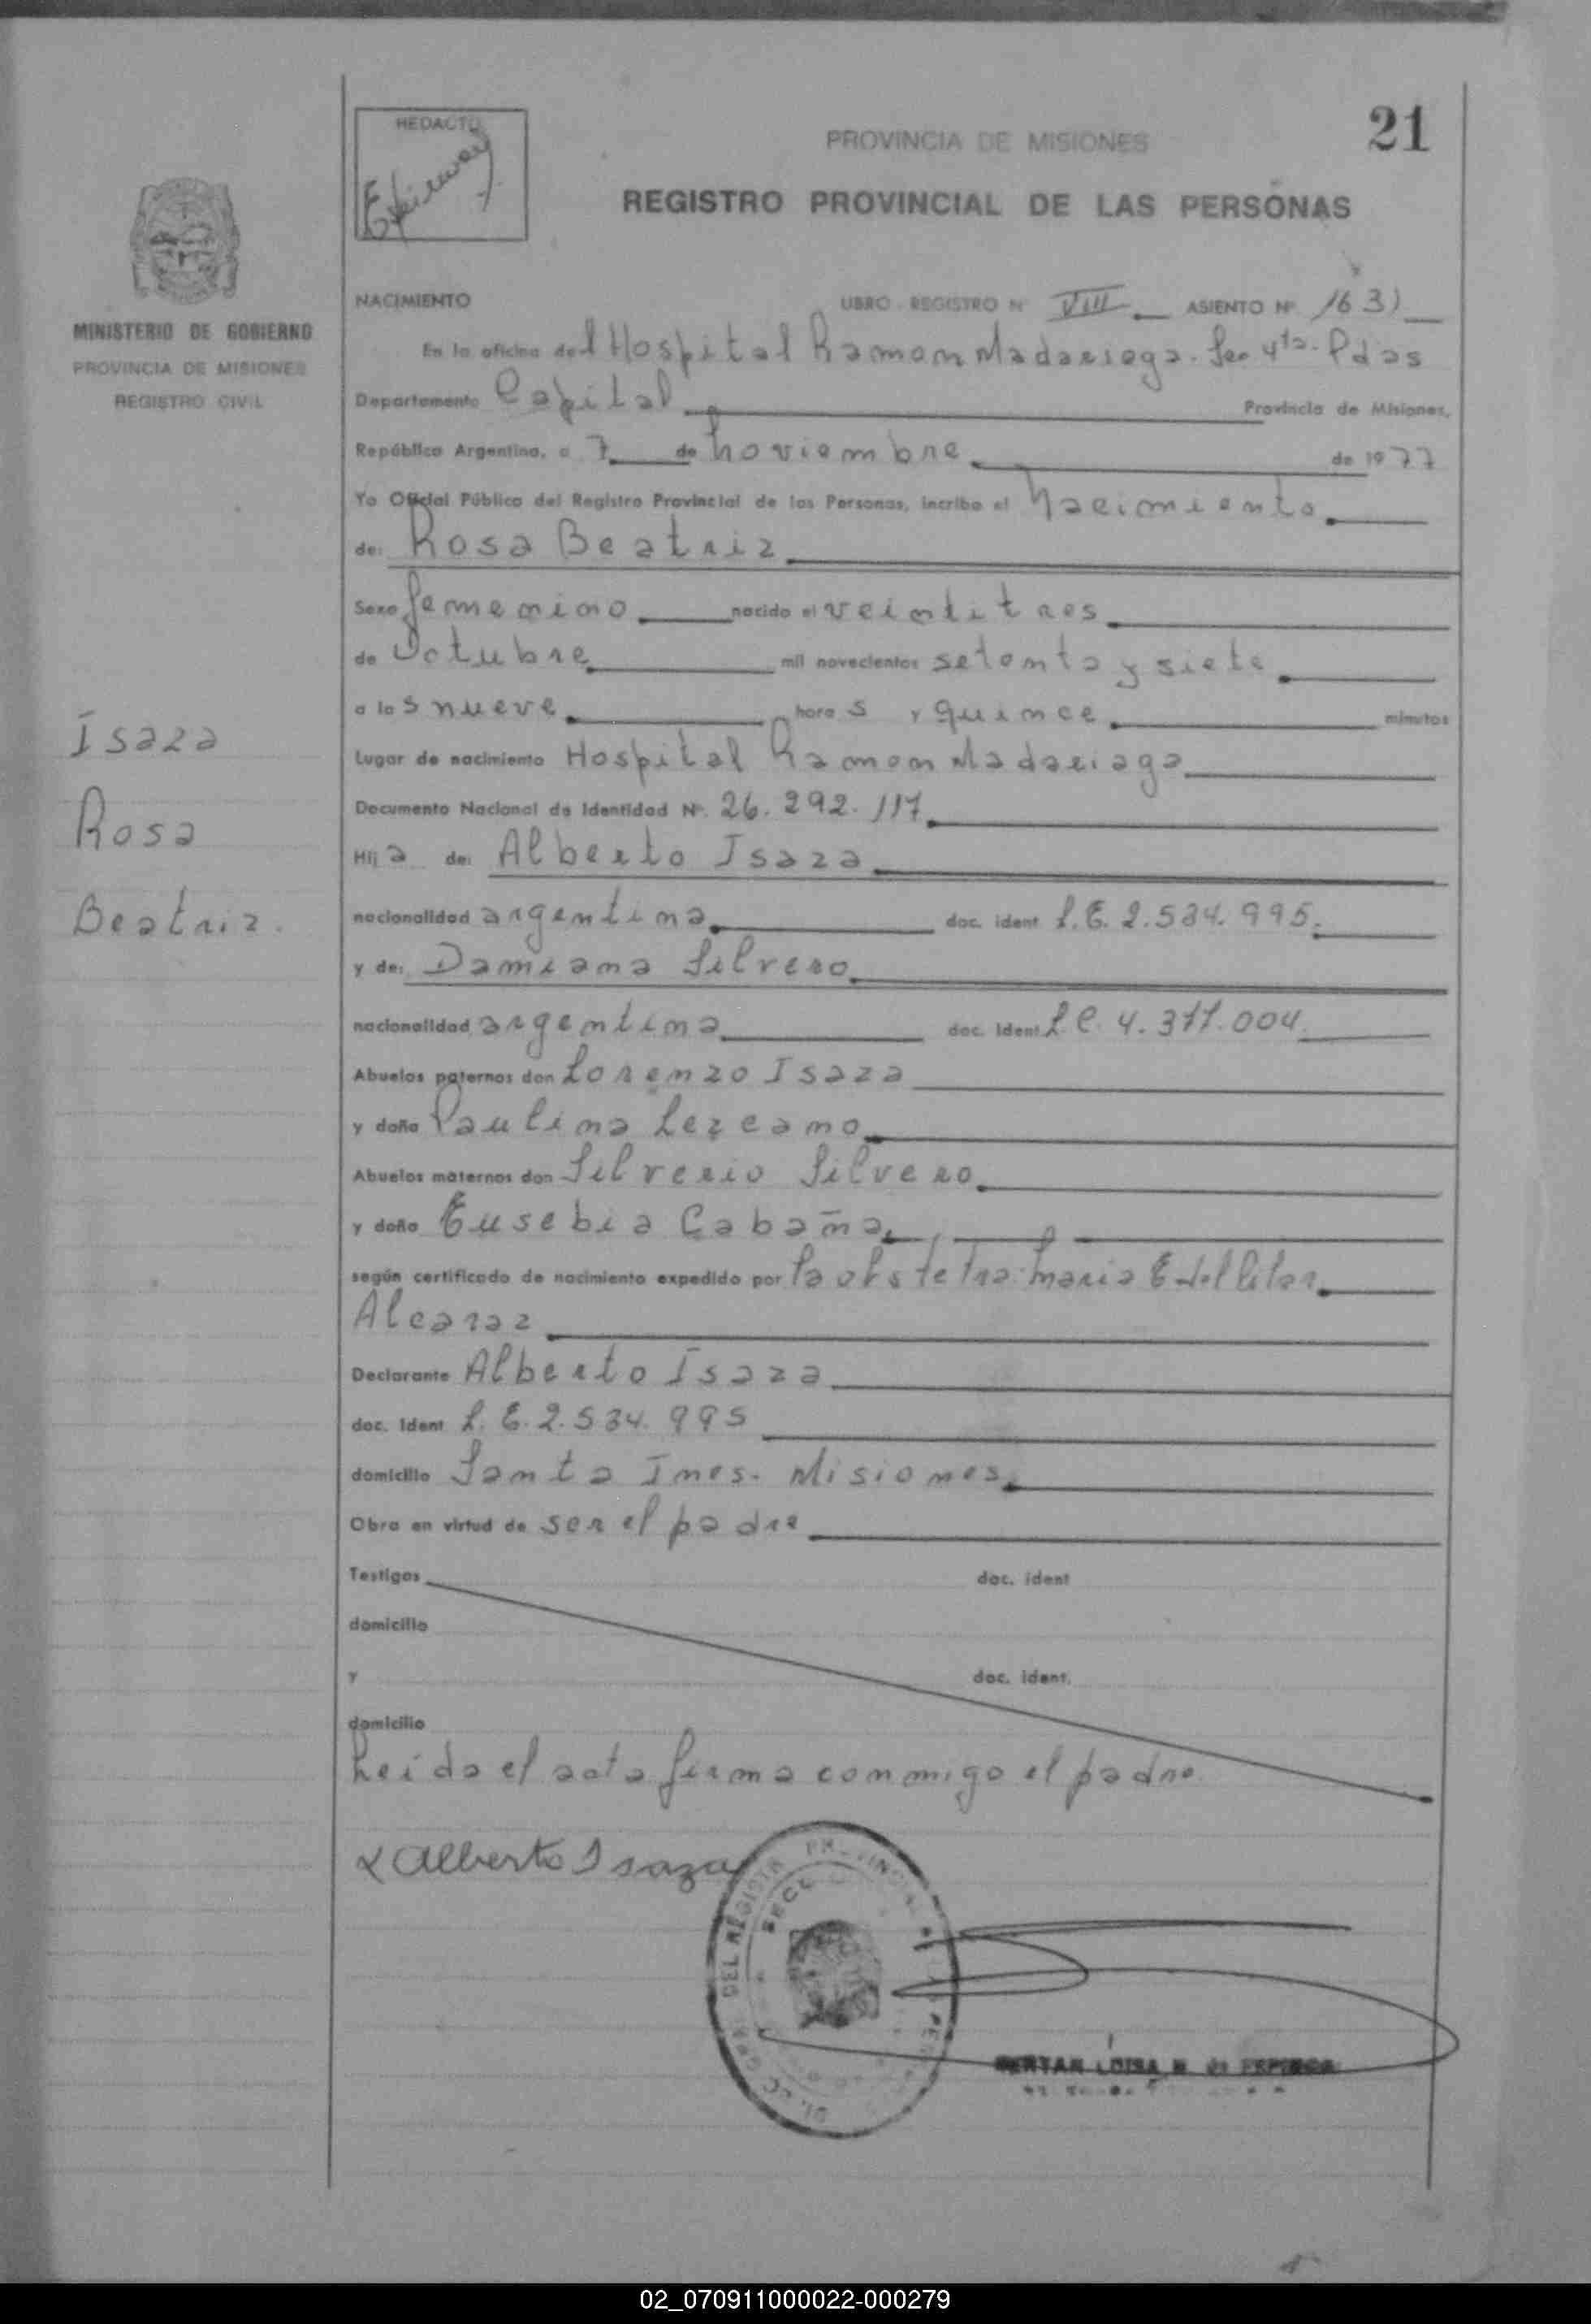 21
REDACTO
PROVINCIA DE MISIONES
REGISTRO PROVINCIAL DE LAS PERSONAS
MINISTERIO DE GOBIERNO
PROVINCIA DE MISIONES
REGISTRO CIVIL
NACIMIENTO LIBRO - REGISTRO Nº VIII ASIENTO Nº 1631
En la oficina del Hospital Ramon Madariaga. Sec 4ta. Pdas
Departamento Capital Provincia de Misiones,
República Argentina, a 7 de noviembre de 1977
Yo Oficial Público del Registro Provincial de las Personas, incribo el nacimiento
de: Rosa Beatriz
Sexo femenino nacido el veintitres
de Octubre mil novecientos setenta y siete
a las nueve horas y quince minutos
Lugar de nacimiento Hospital Ramon Madariaga
Documento Nacional de Identidad Nº. 26.292.117
Hija de: Alberto Isaza
nacionalidad argentina doc. ident L.E. 2.534.995.
y de: Damiana Silvero
nacionalidad argentina doc. ident L.C. 4.311.004.
Abuelos paternos don Lorenzo Isaza
y doña Paulina Lezcano
Abuelos maternos don Silverio Silvero
y doña Eusebia Cabaña
según certificado de nacimiento expedido por la obstetra: Maria E del Pilar
Alcaraz
Declarante Alberto Isaza
doc. Ident L.E. 2.534.995
domicilio Santa Ines. Misiones
Obra en virtud de ser el padre
Testigos doc. ident
domicilio
y doc. ident.
domicilio
Leida el acta firma conmigo el padre.
x Alberto Isaza
Isaza
Rosa
Beatriz.
DEL REGISTR
SECC
LUISA
02_070911000022-000279